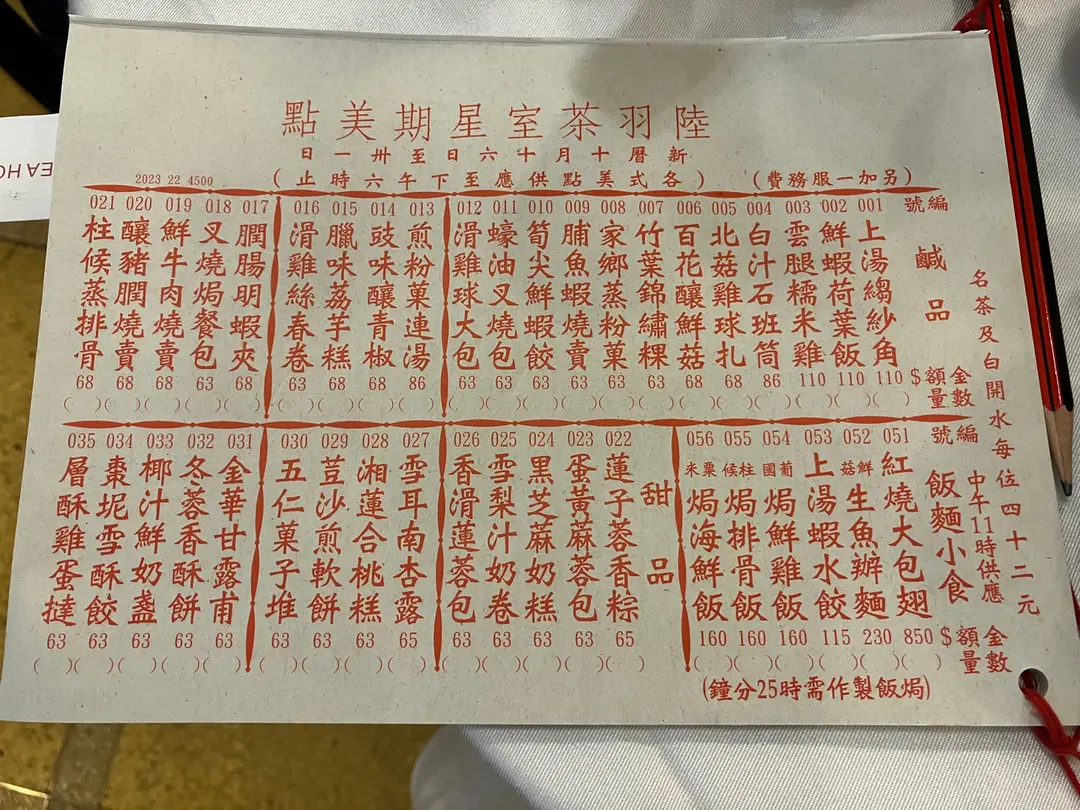 陸羽茶室星期美點
新曆十月十六日至卅一日
(另加一服務費)
(各式美點供應至下午六時止)
2023 22 4500
名茶及白開水每位四十二元
鹹品
編號
金額 數量 $
001 上湯縐紗角 110 ( )
002 鮮蝦荷葉飯 110 ( )
003 雲腿糯米雞 110 ( )
004 白汁石班筒 86 ( )
005 北菇雞球扎 68 ( )
006 百花釀鮮菇 68 ( )
007 竹葉錦繡粿 63 ( )
008 家鄉蒸粉菓 63 ( )
009 脯魚蝦燒賣 63 ( )
010 筍尖鮮蝦餃 63 ( )
011 蠔油叉燒包 63 ( )
012 滑雞球大包 63 ( )
013 煎粉菓連湯 86 ( )
014 豉味釀青椒 68 ( )
015 臘味荔芋糕 68 ( )
016 滑雞絲春卷 63 ( )
017 膶腸明蝦夾 68 ( )
018 叉燒焗餐包 63 ( )
019 鮮牛肉燒賣 68 ( )
020 釀豬膶燒賣 68 ( )
021 柱候蒸排骨 68 ( )
飯麵小食
中午11時供應
編號
金額 數量 $
051 紅燒大包翅 850 ( )
052 鮮菇生魚辦麵 230 ( )
053 上湯蝦水餃 115 ( )
054 葡國焗鮮雞飯 160 ( )
055 柱候焗排骨飯 160 ( )
056 粟米焗海鮮飯 160 ( )
(焗飯製作需時25分鐘)
甜品
022 蓮子蓉香粽 65 ( )
023 蛋黃蔴蓉包 63 ( )
024 黑芝蔴奶糕 63 ( )
025 雪梨汁奶卷 63 ( )
026 香滑蓮蓉包 63 ( )
027 雪耳南杏露 65 ( )
028 湘蓮合桃糕 63 ( )
029 荳沙煎軟餅 63 ( )
030 五仁菓子堆 63 ( )
031 金華甘露甫 63 ( )
032 冬蓉香酥餅 63 ( )
033 椰汁鮮奶盞 63 ( )
034 棗坭雪酥餃 63 ( )
035 層酥雞蛋撻 63 ( )
EA HO